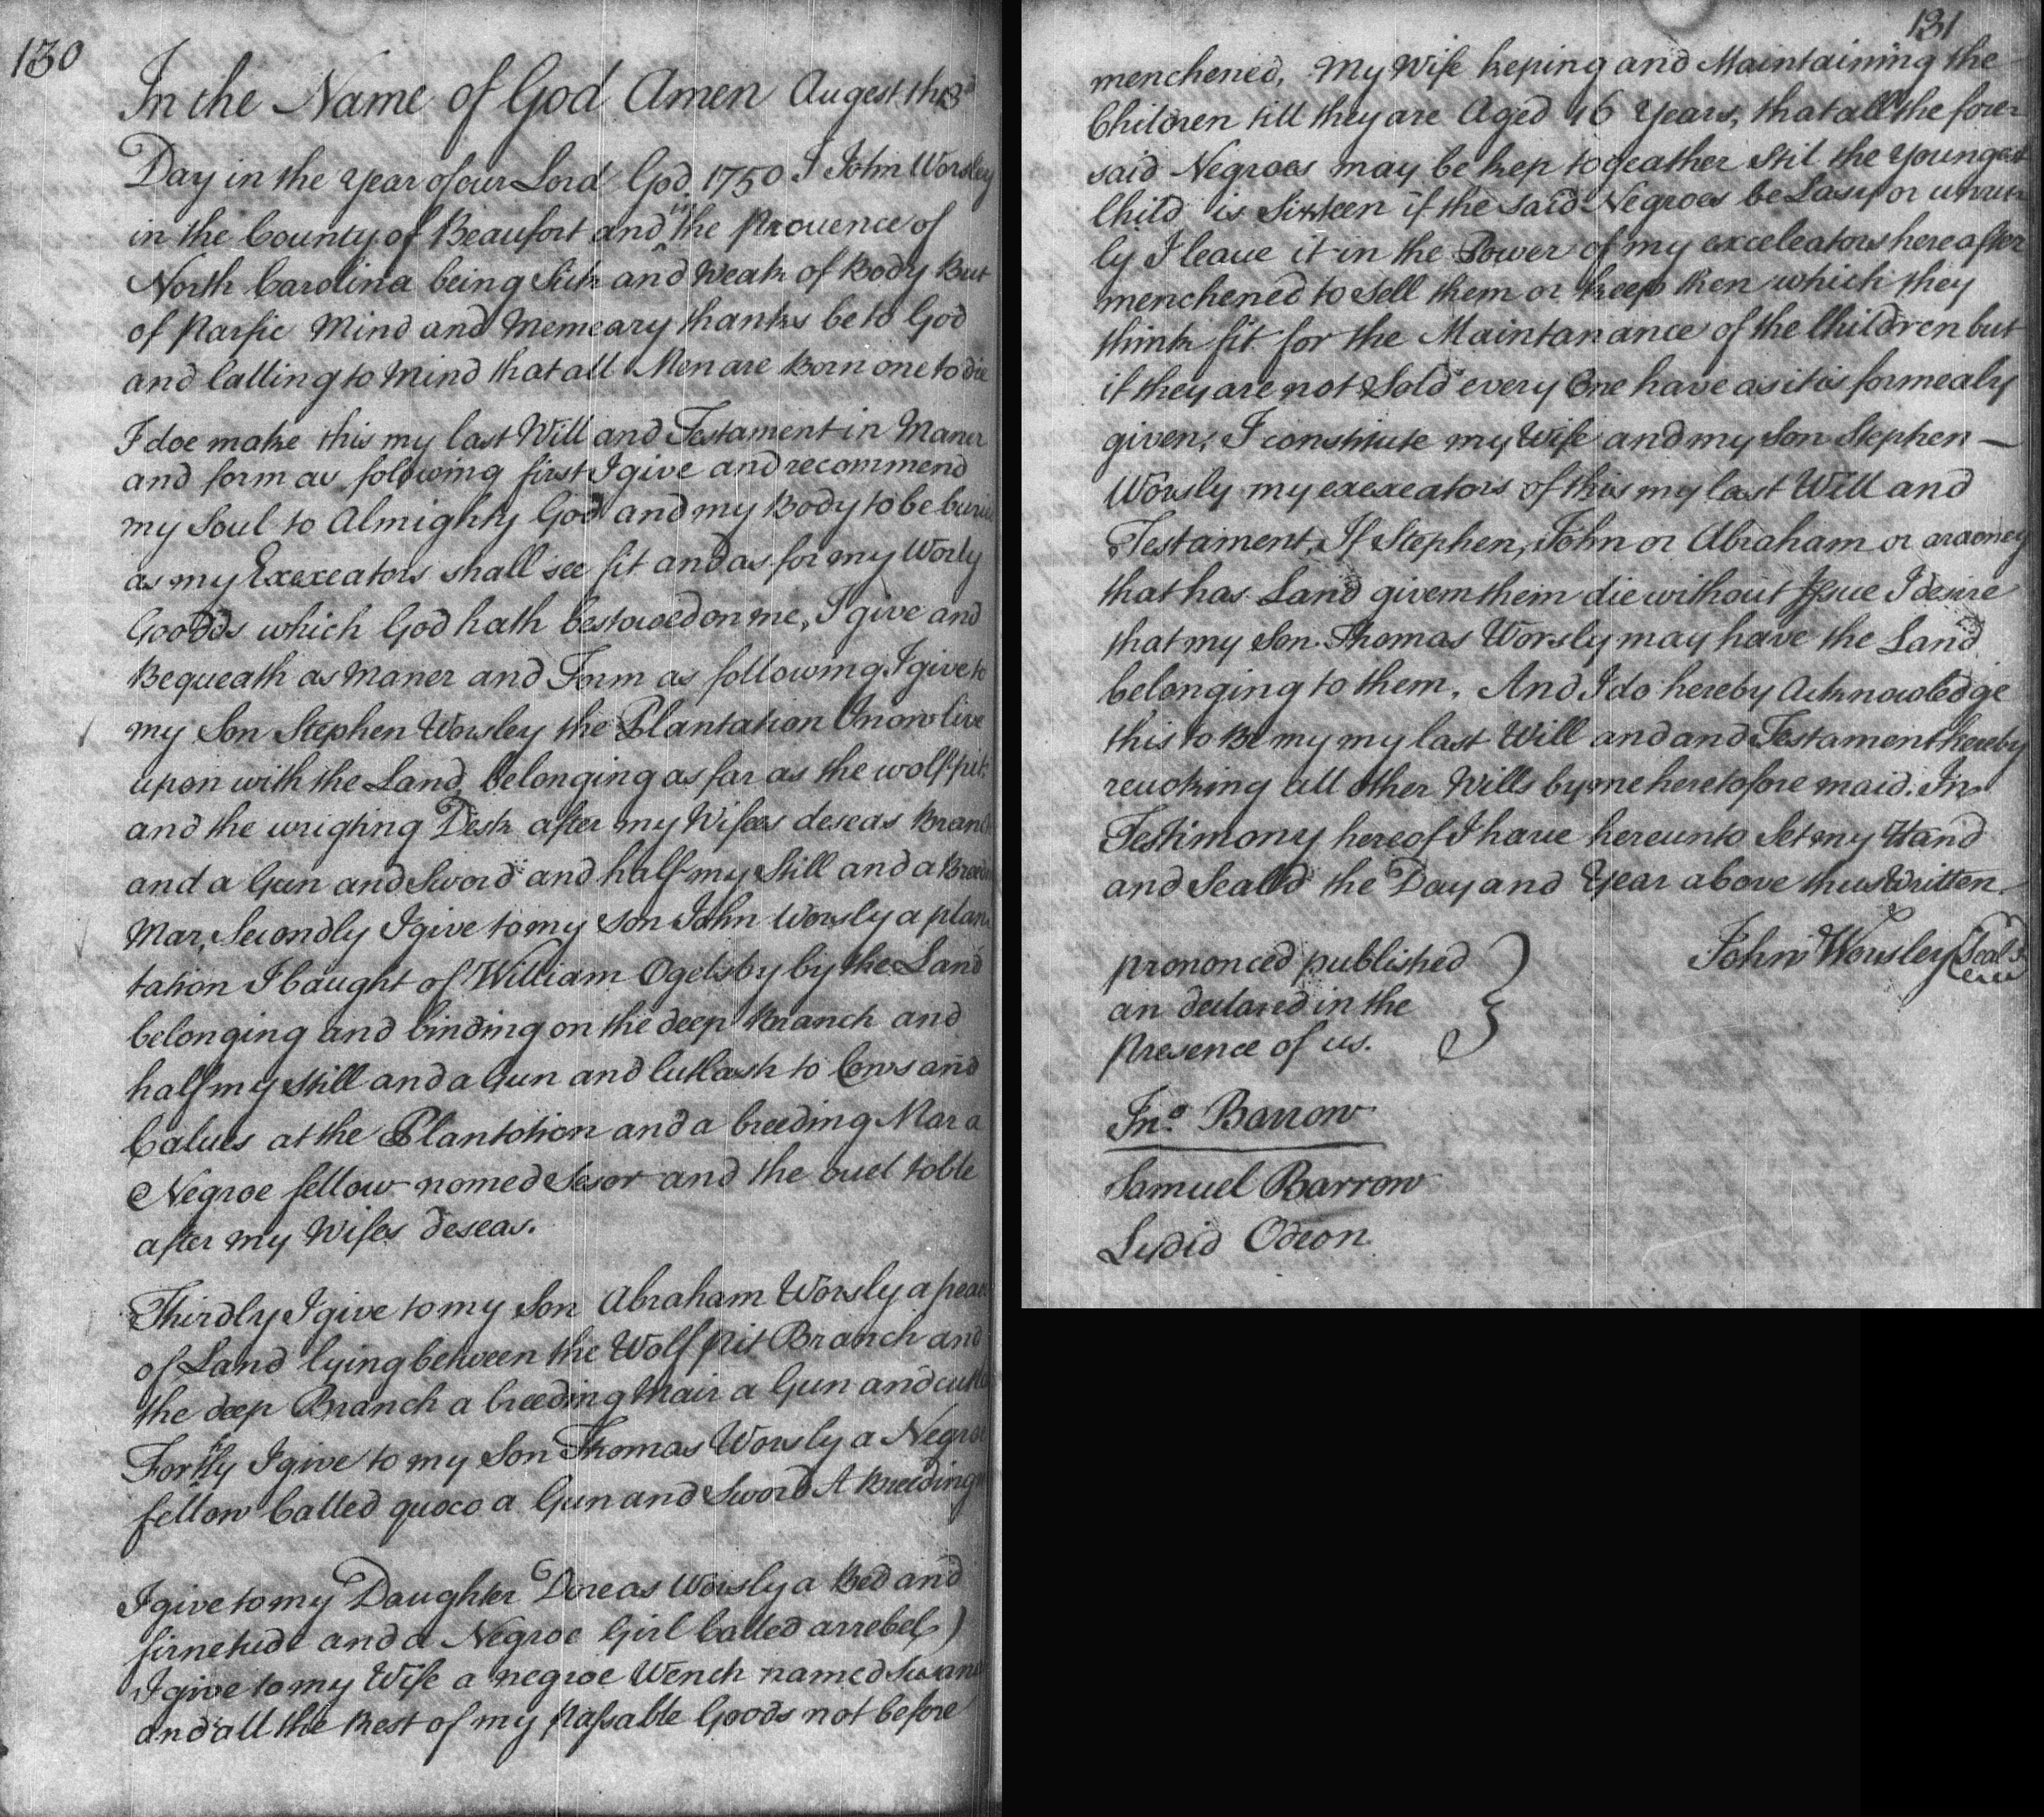 130
In the Name of God Amen Augest the 3d
Day in the Year of our Lord God 1750 I John Worsley
in the County of Beaufort and in the Provence of
North Carolina being Sick and Weak of Body But
of Parfic Mind and Memeary thanks be to God
and Calling to Mind that all Men are Born one to die
I doe make this my last Will and Testament in Maner
and form as folowing first I give and recommend
my Soul to Almighty God and my Body to be buried
as my Exexeators shall see fit and as for my Worly
Goodds which God hath bestowed on me, I give and
Bequeath as Maner and Form as following. I give to
my Son Stephen Worsley the Plantation I now live
upon with the Land belonging as far as the wolf pit
and the wrighting Desk after my Wifees deseas Branch
and a Gun and Sword and half my Still and a Breeding
Mar, Secondly I give to my son John Worsly a plan
tation I baught of William Ogelsby by the Land
belonging and binding on the deep Branch and
half my Still and a Gun and Cutlash to Cows and
Calves at the Plantotion and a breeding Mar a
Negroe fellow nomed Sesor and the ovel toble
after my Wifes deseas.
Thirdly I give to my Son Abraham Worsly a peac
of Land lying between the Wolf pit Branch and
the deep Branch a breeding Mair a Gun and cutla
Forthly I give to my Son Thomas Worsly a Negroe
fellow Called quoco a Gun and Sword A Breeding
I give to my Daughter Doreas Worsly a Bed and
firneted and a Negroe Girl Called arrebel,)
I give to my Wife a negroe Wench named Susana
and all the Rest of my Passable Goods not before
131
menchened, My Wife keping and Maintaining the
Children till they are Aged 16 Years, that all the fore=
said Negroes may be kep togeather Stil the Youngest
Child is Sixteen if the Said Negroes be Lasy or unru
ly I leave it in the Power of my exceleators hereafter
menchened to Sell them or keep ken which they
think fit for the Maintanance of the Children but
if they are not Sold every One have as it is formealy
given; I constitute my Wife and my Son Stephen —
Worsly my exexeators of this my last Will and
Testament, If Stephen, John or Abraham or araoney
that has Land givem them die without Issue I desire
that my Son Thomas Worsly may have the Land
belonging to them. And I do hereby Acknowledge
this to Be my my last Will and and Testament hereby
revoking all other Wills by me heretofore maid. In
Testimony hereof I have hereunto Set my Hand
and Seal'd the Day and Year above thus Written.
John Worsley Seal
prononced published
an declared in the
Presence of us.
Jno. Barrow
Samuel Barrow
Lydid Odeon